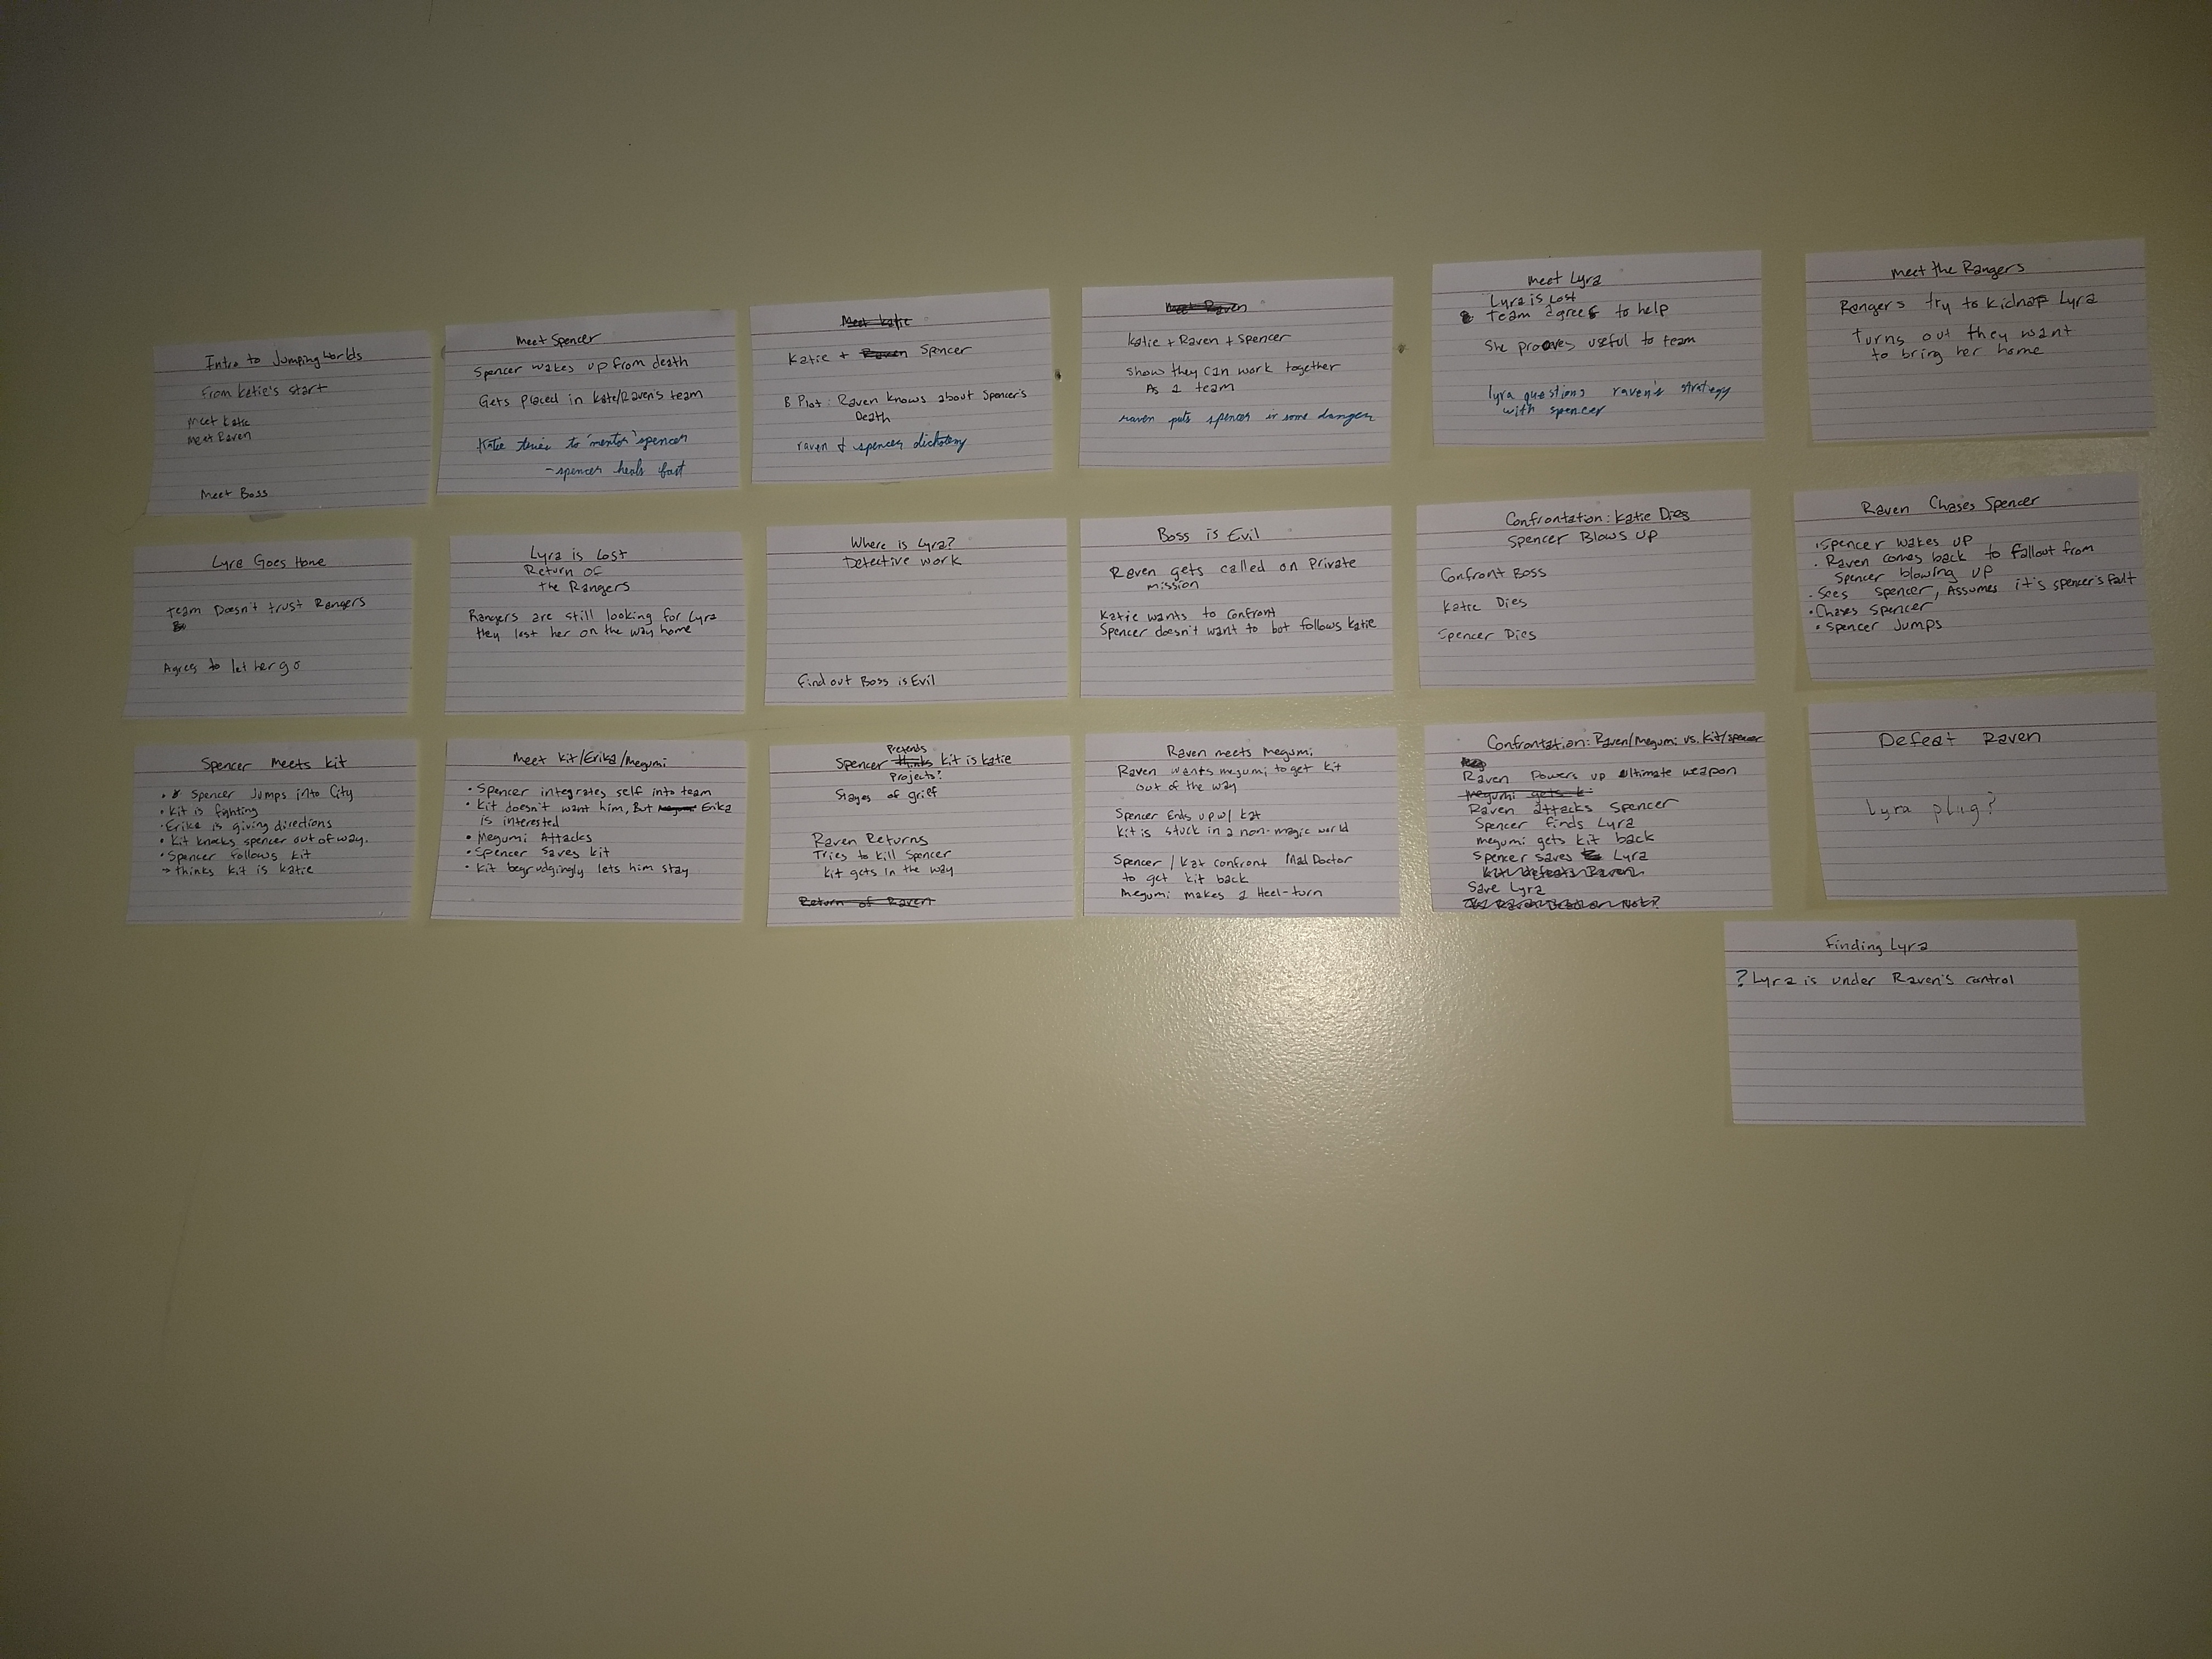 Intro to Jumping Worlds
From Katie's start
Meet Katie
Meet Raven
Meet Boss
Meet Spencer
Spencer wakes up from death
Gets placed in Kate/Raven's team
Katie tries to "mentor" spencer
- spencer heals fast
Meet Katie
Katie + Raven Spencer
B Plot: Raven knows about Spencer's
Death
raven & spencer dichotomy
Meet Raven
Katie + Raven + Spencer
show they can work together
As a team
raven puts spencer in some danger
Meet Lyra
Lyra is Lost
Team agrees to help
She prooves useful to team
lyra questions raven's strategy
with spencer
Meet the Rangers
Rangers try to kidnap Lyra
Turns out they want
to bring her home
Lyra Goes Home
Team Doesn't trust Rangers
Agrees to let her go
Lyra is Lost
Return of
the Rangers
Rangers are still looking for Lyra
they lost her on the way home
Where is Lyra?
Detective work
Find out Boss is Evil
Boss is Evil
Raven gets called on Private
mission
Katie wants to confront
Spencer doesn't want to but follows Katie
Confrontation: Katie Dies
Spencer Blows Up
Confront Boss
Katie Dies
Spencer Dies
Raven Chases Spencer
• Spencer wakes up
• Raven comes back to fallout from
Spencer blowing up
• Sees Spencer, Assumes it's spencer's fault
• Chases Spencer
• Spencer Jumps
Spencer Meets Kit
• Spencer Jumps into City
• Kit is fighting
• Erika is giving directions
• Kit knocks spencer out of way.
• Spencer follows Kit
→ thinks Kit is Katie
Meet Kit/Erika/Megumi
• Spencer integrates self into team
• Kit doesn't want him, But Megumi Erika
is interested
• Megumi Attacks
• Spencer Saves Kit
• Kit begrudgingly lets him stay
Pretends
Spencer thinks Kit is Katie
Projects?
Stages of grief
Raven Returns
Tries to kill Spencer
Kit gets in the way
Return of Raven
Raven meets Megumi
Raven wants megumi to get Kit
out of the way
Spencer Ends up w/ Kat
Kit is stuck in a non-magic world
Spencer / Kat confront Mad Doctor
to get Kit back
Megumi makes a Heel-turn
Confrontation: Raven/Megumi vs. Kit/spencer
Raven Powers up ultimate weapon
Megumi gets k
Raven attacks Spencer
Spencer finds Lyra
megumi gets Kit back
Spencer saves Lyra
Kat defeats Raven
Save Lyra
Is Raven Dead or Not?
Defeat Raven
Lyra plug?
Finding Lyra
? Lyra is under Raven's control